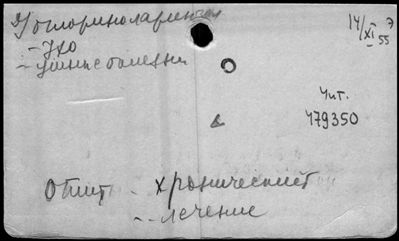 Отоларингол
14/XI 55
- ухо
- ушные болезни
Чит.
479350
Отит - хронический
- - лечение